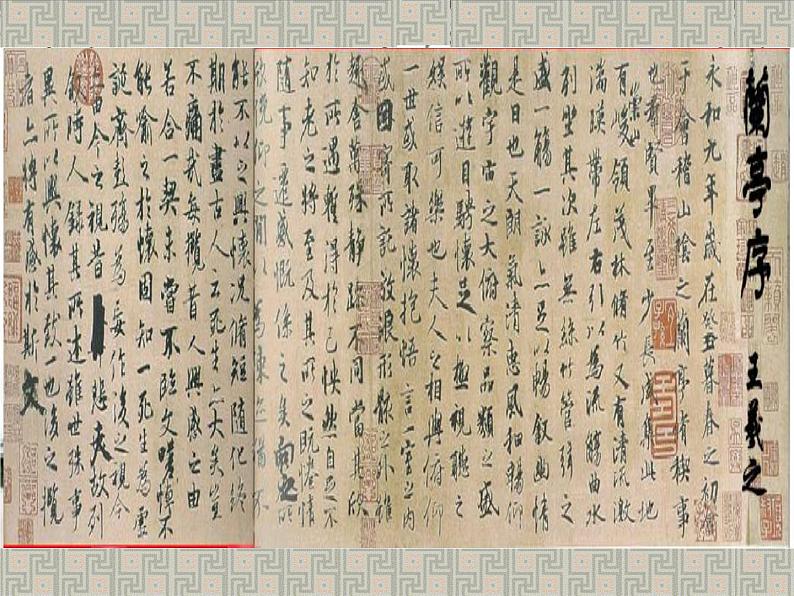 蘭亭序 王羲之
永和九年歲在癸丑暮春之初會
于會稽山陰之蘭亭脩稧事
也羣賢畢至少長咸集此地
有崇山峻領茂林脩竹又有清流激
湍暎帶左右引以為流觴曲水
列坐其次雖無絲竹管弦之
盛一觴一詠亦足以暢敘幽情
是日也天朗氣清惠風和暢仰
觀宇宙之大俯察品類之盛
所以遊目騁懷足以極視聽之
娛信可樂也夫人之相與俯仰
一世或取諸懷抱悟言一室之內
或因寄所託放浪形骸之外雖
趣舍萬殊靜躁不同當其欣
於所遇暫得於己怏然自足不
知老之將至及其所之既惓情
隨事遷感慨係之矣向之所
欣俛仰之閒以為陳迹猶不
能不以之興懷況脩短隨化終
期於盡古人云死生亦大矣豈
不痛哉每攬昔人興感之由
若合一契未嘗不臨文嗟悼不
能喻之於懷固知一死生為虛
誕齊彭殤為妄作後之視今
亦由今之視昔悲夫故列
敘時人錄其所述雖世殊事
異所以興懷其致一也後之攬
者亦將有感於斯文